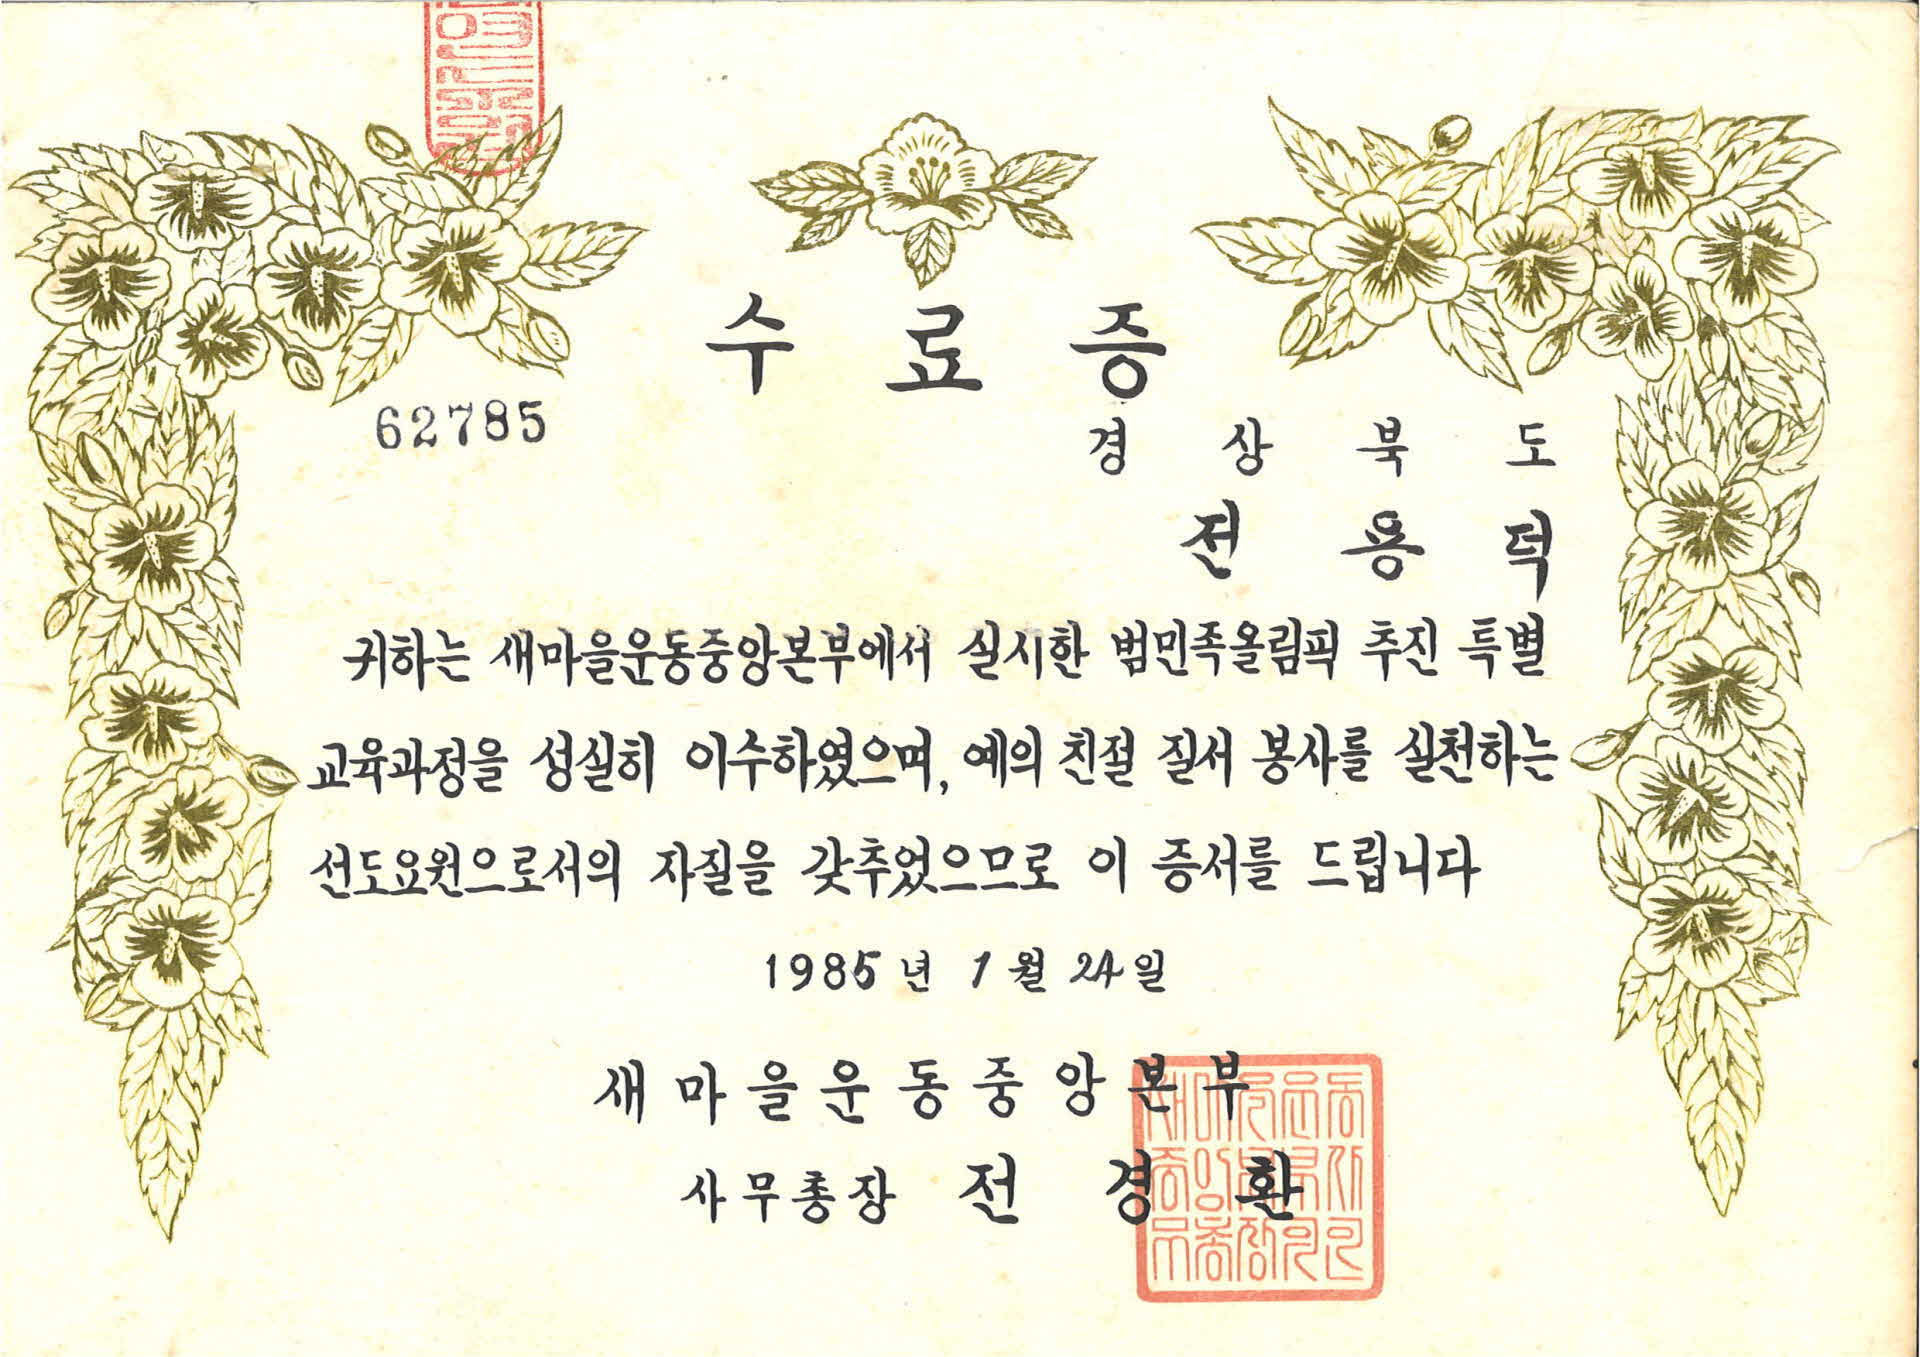 수료증
62785
경상북도
전용덕
귀하는 새마을운동중앙본부에서 실시한 범민족올림픽 추진 특별
교육과정을 성실히 이수하였으며, 예의 친절 질서 봉사를 실천하는
선도요원으로서의 자질을 갖추었으므로 이 증서를 드립니다
1985년 1월 24일
새마을운동중앙본부
사무총장 전경환